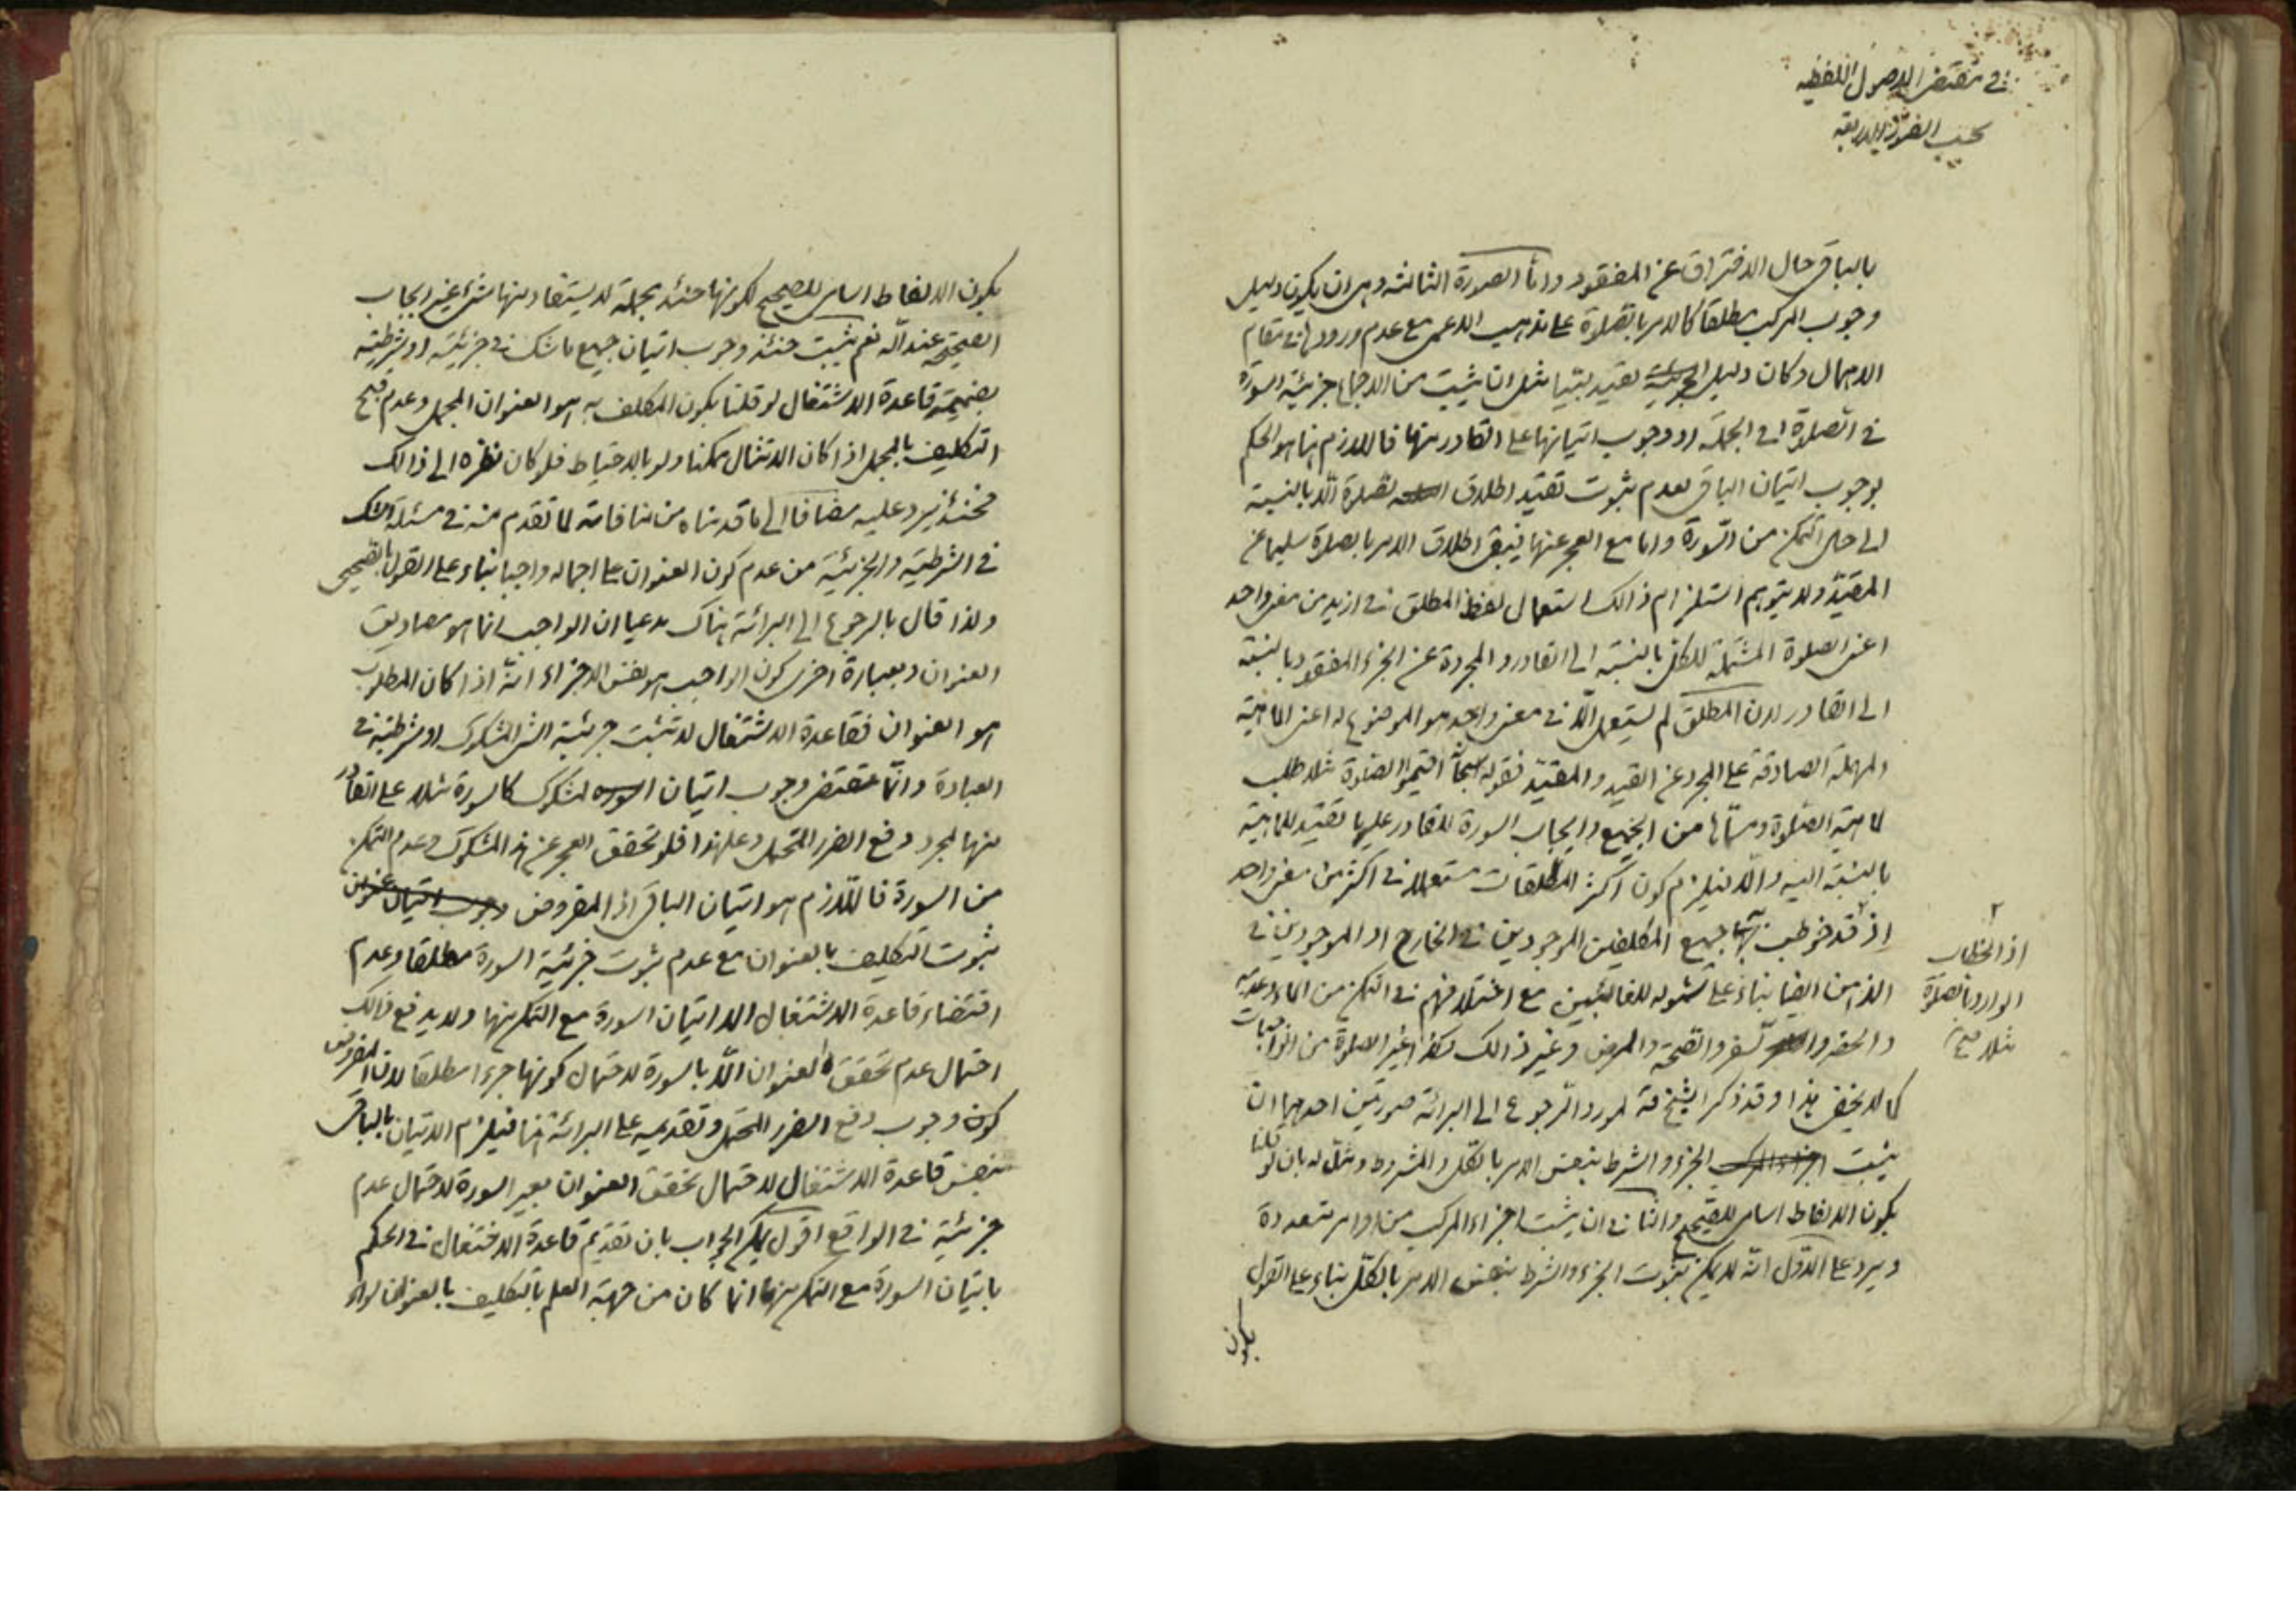 في مقتضى الاصول اللفظيه
بحسب الصور الاربعة
بالباقي حال الافتراق عن المفقود واما الصورة الثالثة وهي ان يكون دليل
وجوب المركب مطلقا كالامر بالصلوة على مذهب الاعمى مع عدم ورودها في مقام
الاهمال وكان دليل الجزئية تقييد بينا مثل ان يثبت من الاجماع جزئية السورة
في الصلوة في الجملة او وجوب اتيانها على القادر منها فاللازم هنا هو الحكم
بوجوب اتيان الباقي لعدم ثبوت تقييد اطلاق الصلوة الا بالنسبة
الى حال التمكن من السورة واما مع العجز عنها فيبقى اطلاق الامر بالصلوة سليما عن
المقيد ولا يتوهم استلزام ذالك استعمال لفظ المطلق في ازيد من معنى واحد
اعنى الصلوة المشتملة للكل بالنسبة الى القادر والمجردة عن الجزء المفقود بالنسبة
الى القادر لان المطلق لم يستعمل الا في معنى واحد هو الموضوع له اعنى الماهية
المهملة الصادقة على المجرد عن القيد والمقيد فقوله اقيموا الصلوة مثلا طلب
لماهية الصلوة من الجميع وايجاب السورة للقادر عليها تقييد للماهية
بالنسبة اليه والا فيلزم كون اكثر المطلقات مستعملا في اكثر من معنى واحد
اذ قد خوطب بها جميع المكلفين الموجودين في الخارج او الموجودين في
الذهن ايضا بناء على شموله للغائبين مع اختلافهم في التمكن من الماء وعدمه
والحضر والسفر والصحة والمرض وغير ذالك وكذا غير الصلوة من الواجبات
كما لا يخفى هذا وقد ذكر الشيخ لمورد الرجوع الى البرائة صورتين احدهما ان
يثبت الجزء والشرط بنفس الامر بالكل والمشروط ومثل له بان قلنا
بكون الالفاظ اسامى للصحيح والثاني ان يثبت اجزاء المركب من اوامر متعددة
ويرد على الاول انه لا يمكن ثبوت الجزء والشرط بنفس الامر بالكل بناء على القول
بكون
اذ الخطاب
الوارد بالصلوة
مثلا صح
بكون الالفاظ اسامى للصحيح لكونها حينئذ مجملة لا يستفاد منها شئ غير ايجاب
الصحيح عند الله نعم يثبت حينئذ وجوب اتيان جميع ما شك في جزئيته او شرطيته
بضميمة قاعدة الاشتغال لو قلنا بكون المكلف به هو العنوان المجمل وعدم قبح
التكليف بالمجمل اذا كان الامتثال ممكنا ولو بالاحتياط فلو كان نظره الى ذالك
فحينئذ يرد عليه مضافا الى ما قدمناه من منافاته لما تقدم منه في مسئلة الشك
في الشرطية والجزئية من عدم كون العنوان على اجماله واجبا بناء على القول بالصحيحي
ولذا قال بالرجوع الى البرائة هناك مدعيا ان الواجب انما هو مصاديق
العنوان وبعبارة اخرى كون الواجب هو نفس الاجزاء انه اذا كان المطلوب
هو العنوان فقاعدة الاشتغال لا تثبت جزئية الشئ المشكوك او شرطيته في
العبادة وانما مقتضى وجوب اتيان المشكوك كالسورة مثلا على القادر
منها لمجرد دفع الضرر المحتمل وعلى هذا فلو تحقق العجز عن هذا المشكوك وعدم التمكن
من السورة فاللازم هو اتيان الباقي اذ المفروض
ثبوت التكليف بالعنوان مع عدم ثبوت جزئية السورة مطلقا وعدم
اقتضاء قاعدة الاشتغال الا اتيان السورة مع التمكن منها ولا يدفع ذالك
احتمال عدم تحقق العنوان الا بالسورة لاحتمال كونها جزءا مطلقا لان المفروض
كون وجوب دفع الضرر المحتمل وتقديمه على البرائة هنا فيلزم الاتيان بالباقي
بنفس قاعدة الاشتغال لاحتمال تحقق العنوان بغير السورة لاحتمال عدم
جزئيته في الواقع اقول يمكن الجواب بان تقديم قاعدة الاشتغال في الحكم
باتيان السورة مع التمكن منها انما كان من جهة العلم بالتكليف بالعنوان